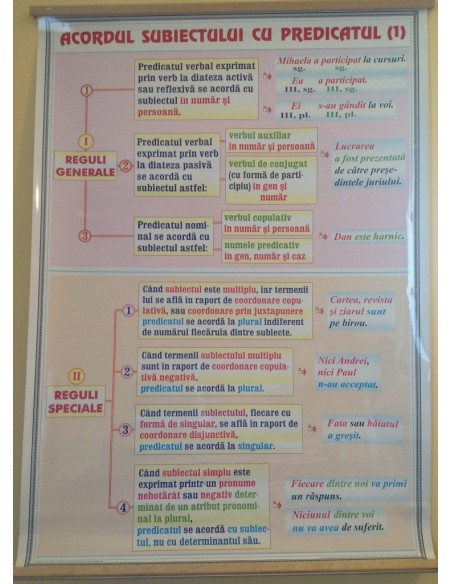 ACORDUL SUBIECTULUI CU PREDICATUL (1)
I
REGULI
GENERALE
1
Predicatul verbal exprimat
prin verb la diateza activă
sau reflexivă se acordă cu
subiectul în număr și
persoană.
Mihaela a participat la cursuri.
sg. sg.
Ea a participat.
III, sg. III, sg.
Ei s-au gândit la voi.
III, pl. III, pl.
2
Predicatul verbal
exprimat prin verb
la diateza pasivă
se acordă cu
subiectul astfel:
verbul auxiliar
în număr și persoană
verbul de conjugat
(cu formă de parti-
cipiu) în gen și
număr
Lucrarea
a fost prezentată
de către preșe-
dintele juriului.
3
Predicatul nomi-
nal se acordă cu
subiectul astfel:
verbul copulativ
în număr și persoană
numele predicativ
în gen, număr și caz
Dan este harnic.
II
REGULI
SPECIALE
1
Când subiectul este multiplu, iar termenii
lui se află în raport de coordonare copu-
lativă, sau coordonare prin juxtapunere
predicatul se acordă la plural indiferent
de numărul fiecăruia dintre subiecte.
Cartea, revista
și ziarul sunt
pe birou.
2
Când termenii subiectului multiplu
sunt în raport de coordonare copula-
tivă negativă,
predicatul se acordă la plural.
Nici Andrei,
nici Paul
n-au acceptat.
3
Când termenii subiectului, fiecare cu
formă de singular, se află în raport de
coordonare disjunctivă,
predicatul se acordă la singular.
Fata sau băiatul
a greșit.
4
Când subiectul simplu este
exprimat printr-un pronume
nehotărât sau negativ deter-
minat de un atribut pronomi-
nal la plural,
predicatul se acordă cu subiec-
tul, nu cu determinantul său.
Fiecare dintre noi va primi
un răspuns.
Niciunul dintre voi
nu va avea de suferit.